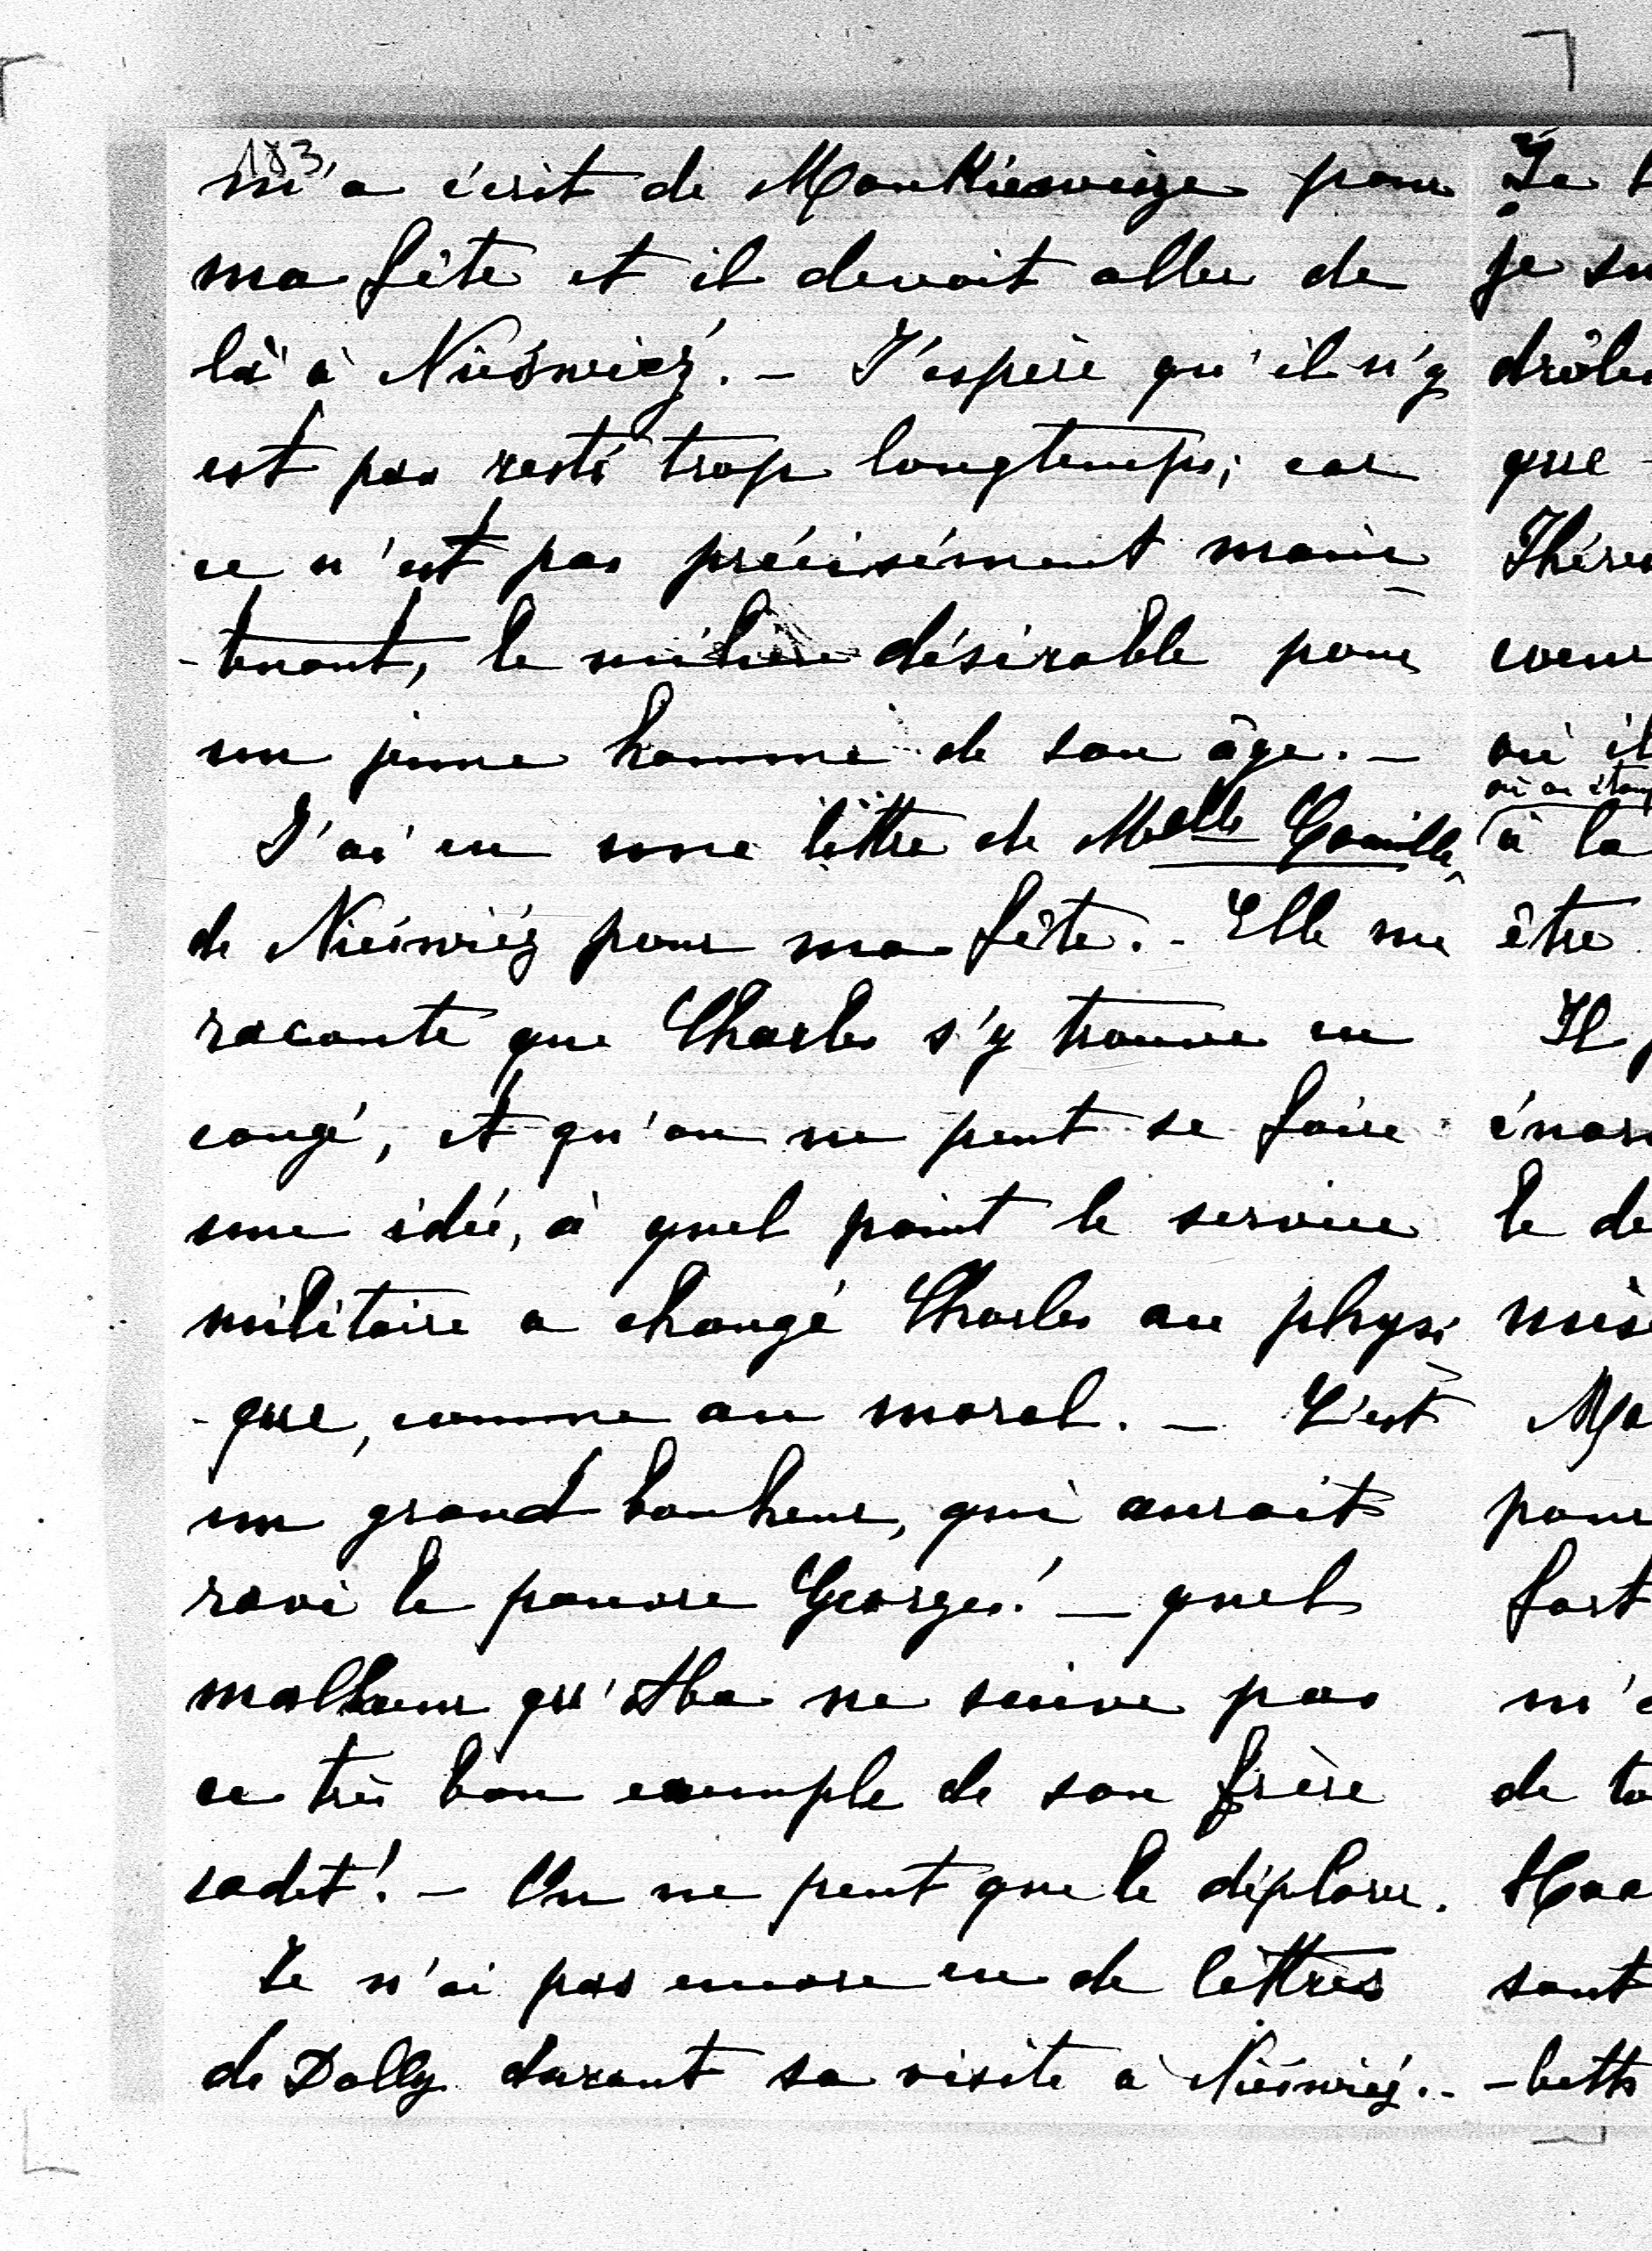 183.
m'a écrit de Mankiewicze pour
ma fête et il devait aller de
là à Nieświez. – J'espère qu'il n'y
est pas resté trop longtemps; car
ce n'est pas précisément main
-tenant, le milieu désirable pour
un jeune homme de son âge. –
J'ai eu une lettre de Melle Camille,
de Nieświéz pour ma fête. - Elle me
raconte que Charles s'y trouve en
congé, et qu'on ne peut se faire
une idée, à quel point le service
militaire a changé Charles au physi
-que, comme au moral. – C'est
un grand bonheur, qui aurait
ravi le pauvre Georges! – quel
malheur qu'Aba ne suive pas
ce très bon exemple de son frère
cadet! – On ne peut que le déplorer.
Je n'ai pas encore eu de lettres
de Dolly durant sa visite à Nieświéz. -
Je
je
drôle
que
où il
à la
être
Il
le de
pour
fort
m'
de
sont